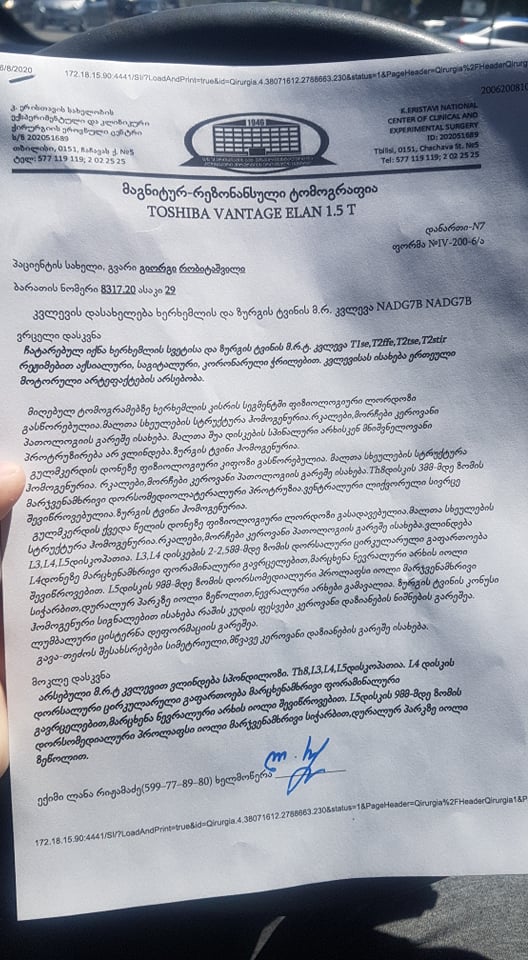 6/8/2020
172.18.15.90:4441/SI/?LoadAndPrint=true&id=Qirurgia.4.38071612.2788663.230&status=1&PageHeader=Qirurgia%2FHeaderQirurg
2006200810
კ. ერისთავის სახელობის
ექსპერიმენტული და კლინიკური
ქირურგიის ეროვნული ცენტრი
ს/ნ 202051689
თბილისი, 0151, ჩაჩავას ქ. №5
ტელ: 577 119 119; 2 02 25 25
1946
K.ERISTAVI NATIONAL
CENTER OF CLINICAL AND
EXPERIMENTAL SURGERY
ID: 202051689
Tbilisi, 0151, Chachava St. №5
Tel: 577 119 119; 2 02 25 25
მაგნიტურ-რეზონანსული ტომოგრაფია
TOSHIBA VANTAGE ELAN 1.5 T
დანართი-N7
ფორმა №IV-200-6/ა
პაციენტის სახელი, გვარი გიორგი რობიტაშვილი
ბარათის ნომერი 8317.20 ასაკი 29
კვლევის დასახელება ხერხემლის და ზურგის ტვინის მ.რ. კვლევა NADG7B NADG7B
ვრცელი დასკვნა
ჩატარებულ იქნა ხერხემლის სვეტისა და ზურგის ტვინის მ.რ.ტ. კვლევა T1se,T2ffe,T2tse,T2stir
რეჟიმებით აქსიალური, საგიტალური, კორონარული ჭრილებით. კვლევისას ისახება ერთეული
მოტორული არტეფაქტების არსებობა.
მიღებულ ტომოგრამებზე ხერხემლის კისრის სეგმენტში ფიზიოლოგიური ლორდოზი
გასწორებულია.მალთა სხეულების სტრუქტურა ჰომოგენურია.რკალები,მორჩები კეროვანი
პათოლოგიის გარეშე ისახება. მალთა შუა დისკების სპინალური არხისკენ მნიშვნელოვანი
პროტრუზირება არ ვლინდება.ზურგის ტვინი ჰომოგენურია.
გულმკერდის დონეზე ფიზიოლოგიური კიფოზი გასწორებულია. მალთა სხეულების სტრუქტურა
ჰომოგენურია. რკალები,მორჩები კეროვანი პათოლოგიის გარეშე ისახება.Th8დისკის 3მმ-მდე ზომის
მარჯვენამხრივი დორსომედიოლატერალური პროტრუზია.ვენტრალური ლიქვორული სივრცე
შევიწროვებულია.ზურგის ტვინი ჰომოგენურია.
გულმკერდის ქვედა წელის დონეზე ფიზიოლოგიური ლორდოზი გასადავებულია.მალთა სხეულების
სტრუქტურა ჰომოგენურია.რკალები,მორჩები კეროვანი პათოლოგიის გარეშე ისახება.ვლინდება
L3,L4,L5დისკოპათია. L3,L4 დისკების 2-2.5მმ-მდე ზომის დორსალური ცირკულარული გაფართოება
L4დონეზე მარცხენამხრივი ფორამინალური გავრცელებით,მარცხენა ნევრალური არხის იოლი
შევიწროვებით. L5დისკის 9მმ-მდე ზომის დორსომედიალური პროლაფსი იოლი მარჯვენამხრივი
სიჭარბით,დურალურ პარკზე იოლი ზეწოლით,ნევრალური არხები გამავალია. ზურგის ტვინის კონუსი
ჰომოგენური სიგნალებით ისახება რაშის კუდის ფესვები კეროვანი დაზიანების ნიშნების გარეშეა.
ლუმბალური ცისტერნა დეფორმაციის გარეშეა.
გავა-თეძოს შესახსრებები სიმეტრიული,მწვავე კეროვანი დაზიანების გარეშე ისახება.
მოკლე დასკვნა
არსებული მ.რ.ტ კვლევით ვლინდება სპონდილოზი. Th8,L3,L4,L5დისკოპათია. L4 დისკის
დორსალური ცირკულარული გაფართოება მარცხენამხრივი ფორამინალური
გავრცელებით,მარცხენა ნევრალური არხის იოლი შევიწროვებით. L5დისკის 9მმ-მდე ზომის
დორსომედიალური პროლაფსი იოლი მარჯვენამხრივი სიჭარბით,დურალურ პარკზე იოლი
ზეწოლით.
ექიმი ლანა რიჟამაძე(599-77-89-80) ხელმოწერა
172.18.15.90:4441/SI/?LoadAndPrint=true&id=Qirurgia.4.38071612.2788663.230&status=1&PageHeader=Qirurgia%2FHeaderQirurgia1&P